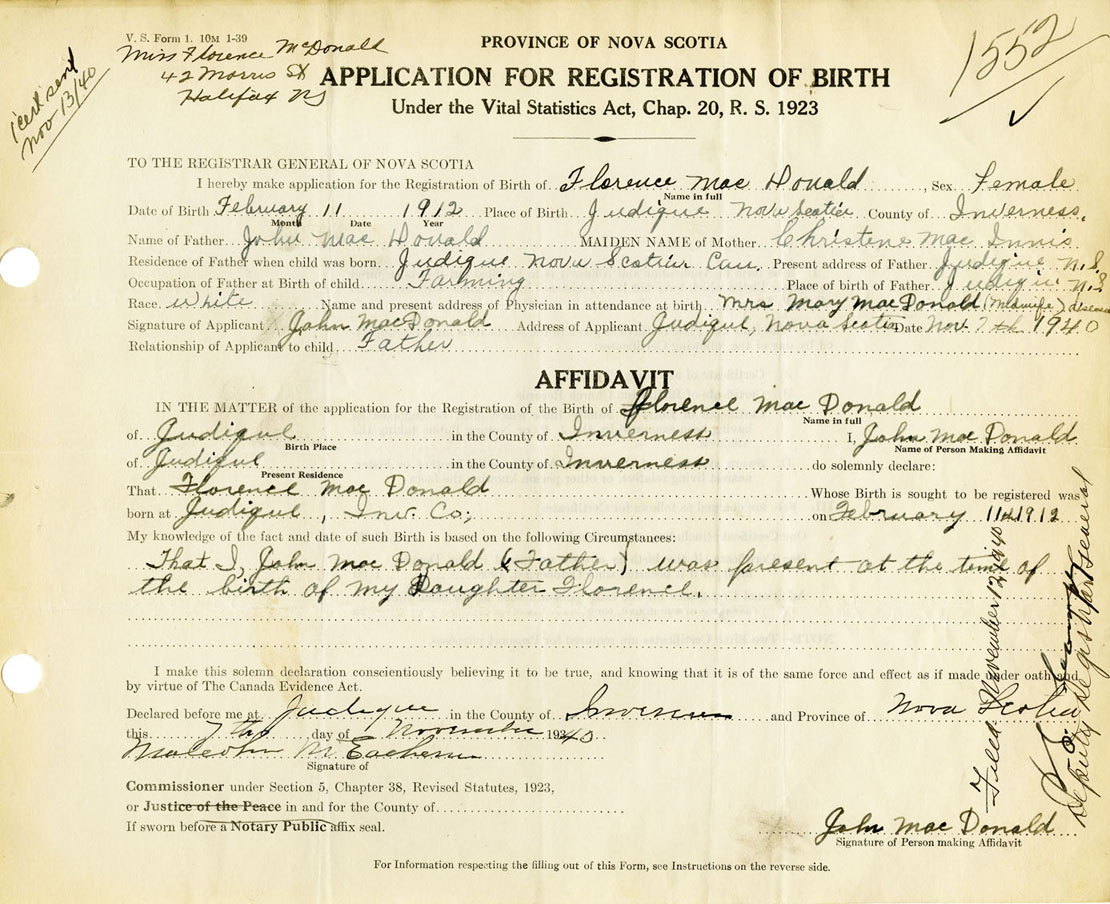 V. S. Form 1. 10M 1-39
Miss Florence McDonald
42 Morris St
Halifax NS
'cert' sent
Nov 13/40
1552
PROVINCE OF NOVA SCOTIA
APPLICATION FOR REGISTRATION OF BIRTH
Under the Vital Statistics Act, Chap. 20, R. S. 1923
TO THE REGISTRAR GENERAL OF NOVA SCOTIA
I hereby make application for the Registration of Birth of Florence Mac Donald, Sex Female
Name in full
Date of Birth February 11 1912 Place of Birth Judique Nova Scotia County of Inverness.
Month Date Year
Name of Father John Mac Donald MAIDEN NAME of Mother Christene Mac Innis
Residence of Father when child was born Judique Nova Scotia Can. Present address of Father Judique N.S
Occupation of Father at Birth of child Farming Place of birth of Father Judique N.S
Race white Name and present address of Physician in attendance at birth Mrs Mary MacDonald (Midwife)
Signature of Applicant John MacDonald Address of Applicant Judique, Nova Scotia Date Nov. 7th 1940
Relationship of Applicant to child Father
AFFIDAVIT
IN THE MATTER of the application for the Registration of the Birth of Florence Mac Donald
Name in full
of Judique in the County of Inverness I, John Mac Donald
Birth Place Name of Person Making Affidavit
of Judique in the County of Inverness do solemnly declare:
Present Residence
That Florence Mac Donald Whose Birth is sought to be registered was
born at Judique, Inv. Co; on February 11th 1912
My knowledge of the fact and date of such Birth is based on the following Circumstances:
That I, John Mac Donald (Father) was present at the time of
the birth of my Daughter Florence.
I make this solemn declaration conscientiously believing it to be true, and knowing that it is of the same force and effect as if made under oath and
by virtue of The Canada Evidence Act.
Declared before me at Judique in the County of Inverness and Province of Nova Scotia
this 7th day of November 1940
Malcolm McEachern
Signature of
Commissioner under Section 5, Chapter 38, Revised Statutes, 1923,
or Justice of the Peace in and for the County of
If sworn before a Notary Public affix seal.
John Mac Donald
Signature of Person making Affidavit
For Information respecting the filling out of this Form, see Instructions on the reverse side.
Filed November 12, 1940
Deputy Registrar General